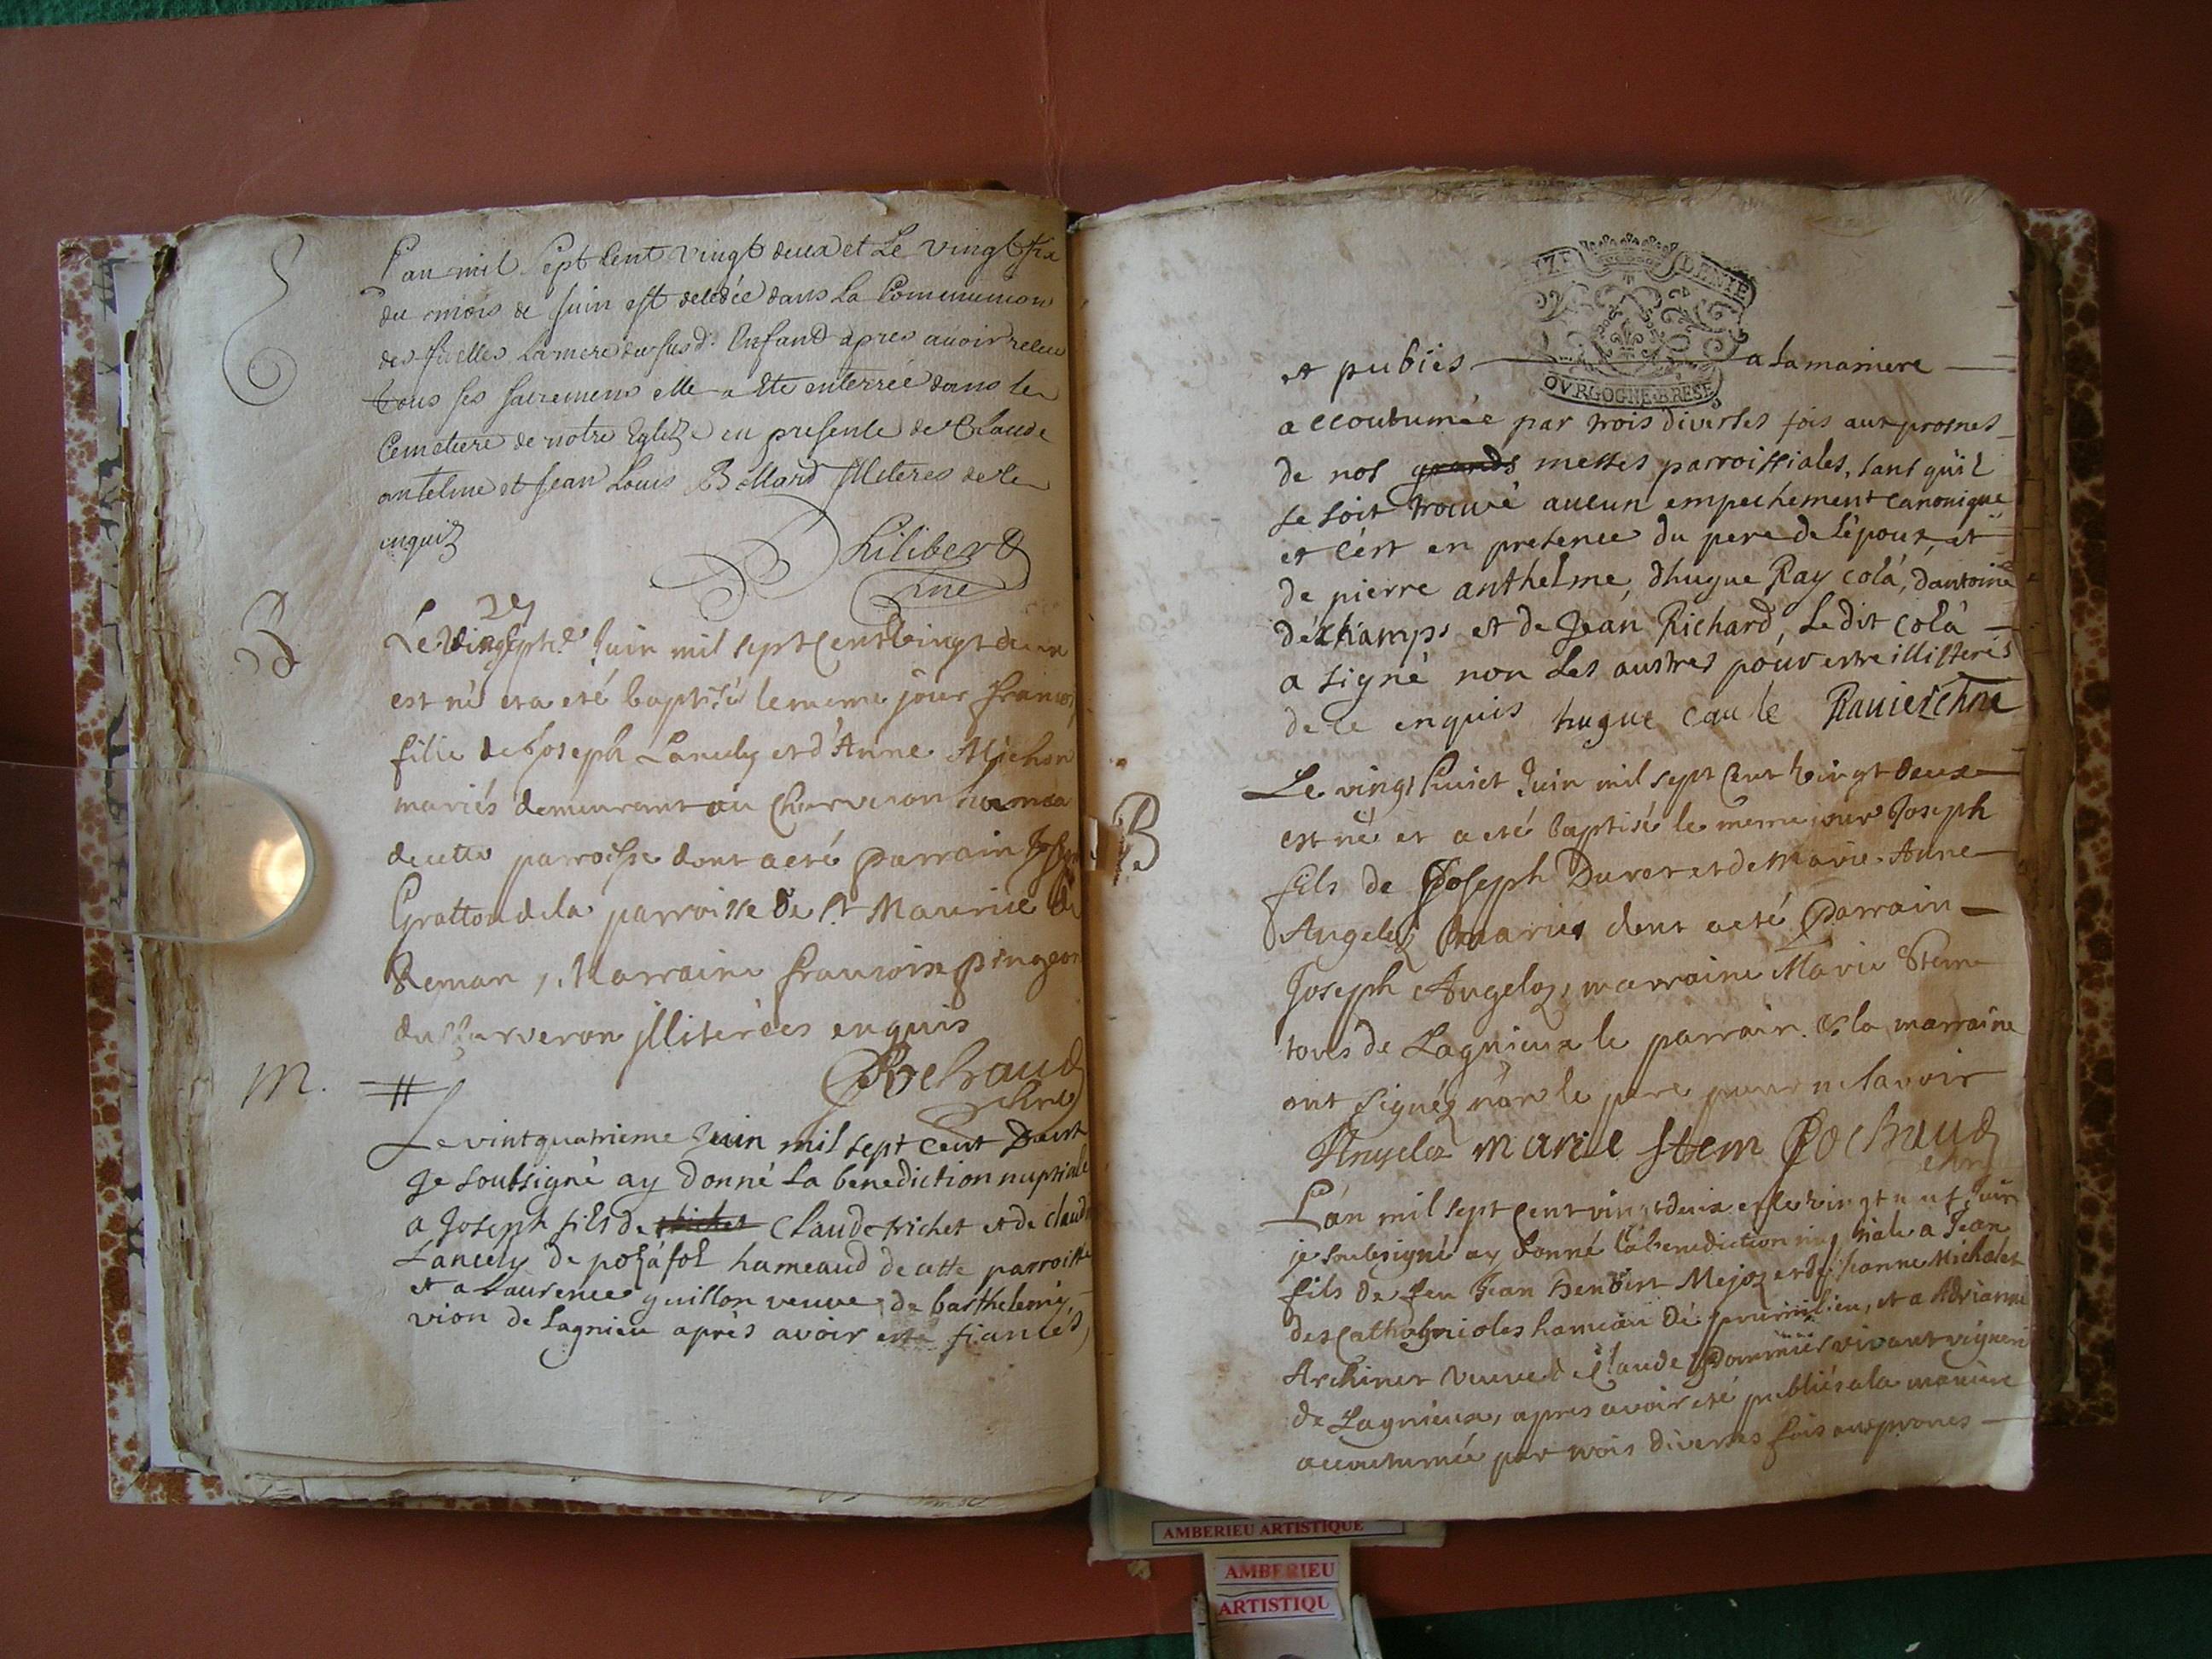 L'an mil sept cent vingt deux et Le vingt six
du mois de Juin est decedée dans La Communion
des fidelles La mere du susd. Enfant apres avoir receu
tous ses sacremens elle a ete enterrée dans le
Cemetiere de notre Eglize en presence de Claude
antelme et Jean Louis Bollard illiteres de ce
enquiz
Philibert
B
27
Le vingt septe Juin mil sept cent vingt deux
est né et a eté baptisé le meme jour francois
filie de Joseph Lancely et d'Anne Michon
mariés demeurant au Charveron hameau
de cette parroisse dont a eté parrain Joseph
Gratton de la parroisse de St Maurice de
Reman, Marraine francoise pingeon
du Charveron illiterées enquis
Rochaud
m.
Le vint quatrieme Juin mil sept cent
Je soubsigné ay donné la benediction nuptiale
a Joseph fils de Claude trichet et de claud
Lancely de posafol hameaud de cette parroisse
et a Laurence guillon veuve de barthelemy
vion de Lagnieu après avoir esté fiancés
IZE DENIE
OVRGOGNE BRESE
et publiés a la maniere
accoutumée par trois diverses fois aux prosnes
de nos messes parroissiales, sans qu'il
se soit trouvé aucun empechement canonique
et c'est en presence du pere de l'époux, et
de pierre anthelme, d'hugue Ray colà, d'antoine
déschamps et de Jean Richard, Le dit colà
a signé non Les austres pour estre illisterés
de ce enquis hugue caule Ravier
B
Le vingt huict Juin mil sept cent vingt deux
est né et a eté baptisé le meme jour Joseph
fils de Joseph Duret et de Marie Anne
Angeloz mariés dont a eté Parrain
Joseph Angeloz, marraine Marie Stem
tous de Lagnieux le parrain & la marraine
ont signéz non le pere pour ne savoir
Angeloz marie stem Rochaud
L'an mil sept cent vingt deux et le vingt neuf Juin
je soubsigné ay donné la benediction nuptiale a Jean
fils de feu Jean Henbert Mejoz et de Jeanne Michalet
des hameau de proumilieu, et a Adrianne
Archiner veuve de Claude Pommier vivant vigneron
de Lagnieux, apres avoir eté publiés a la maniere
accoutumée par trois diverses fois aux prones
AMBERIEU ARTISTIQUE
AMBERIEU
ARTISTIQU